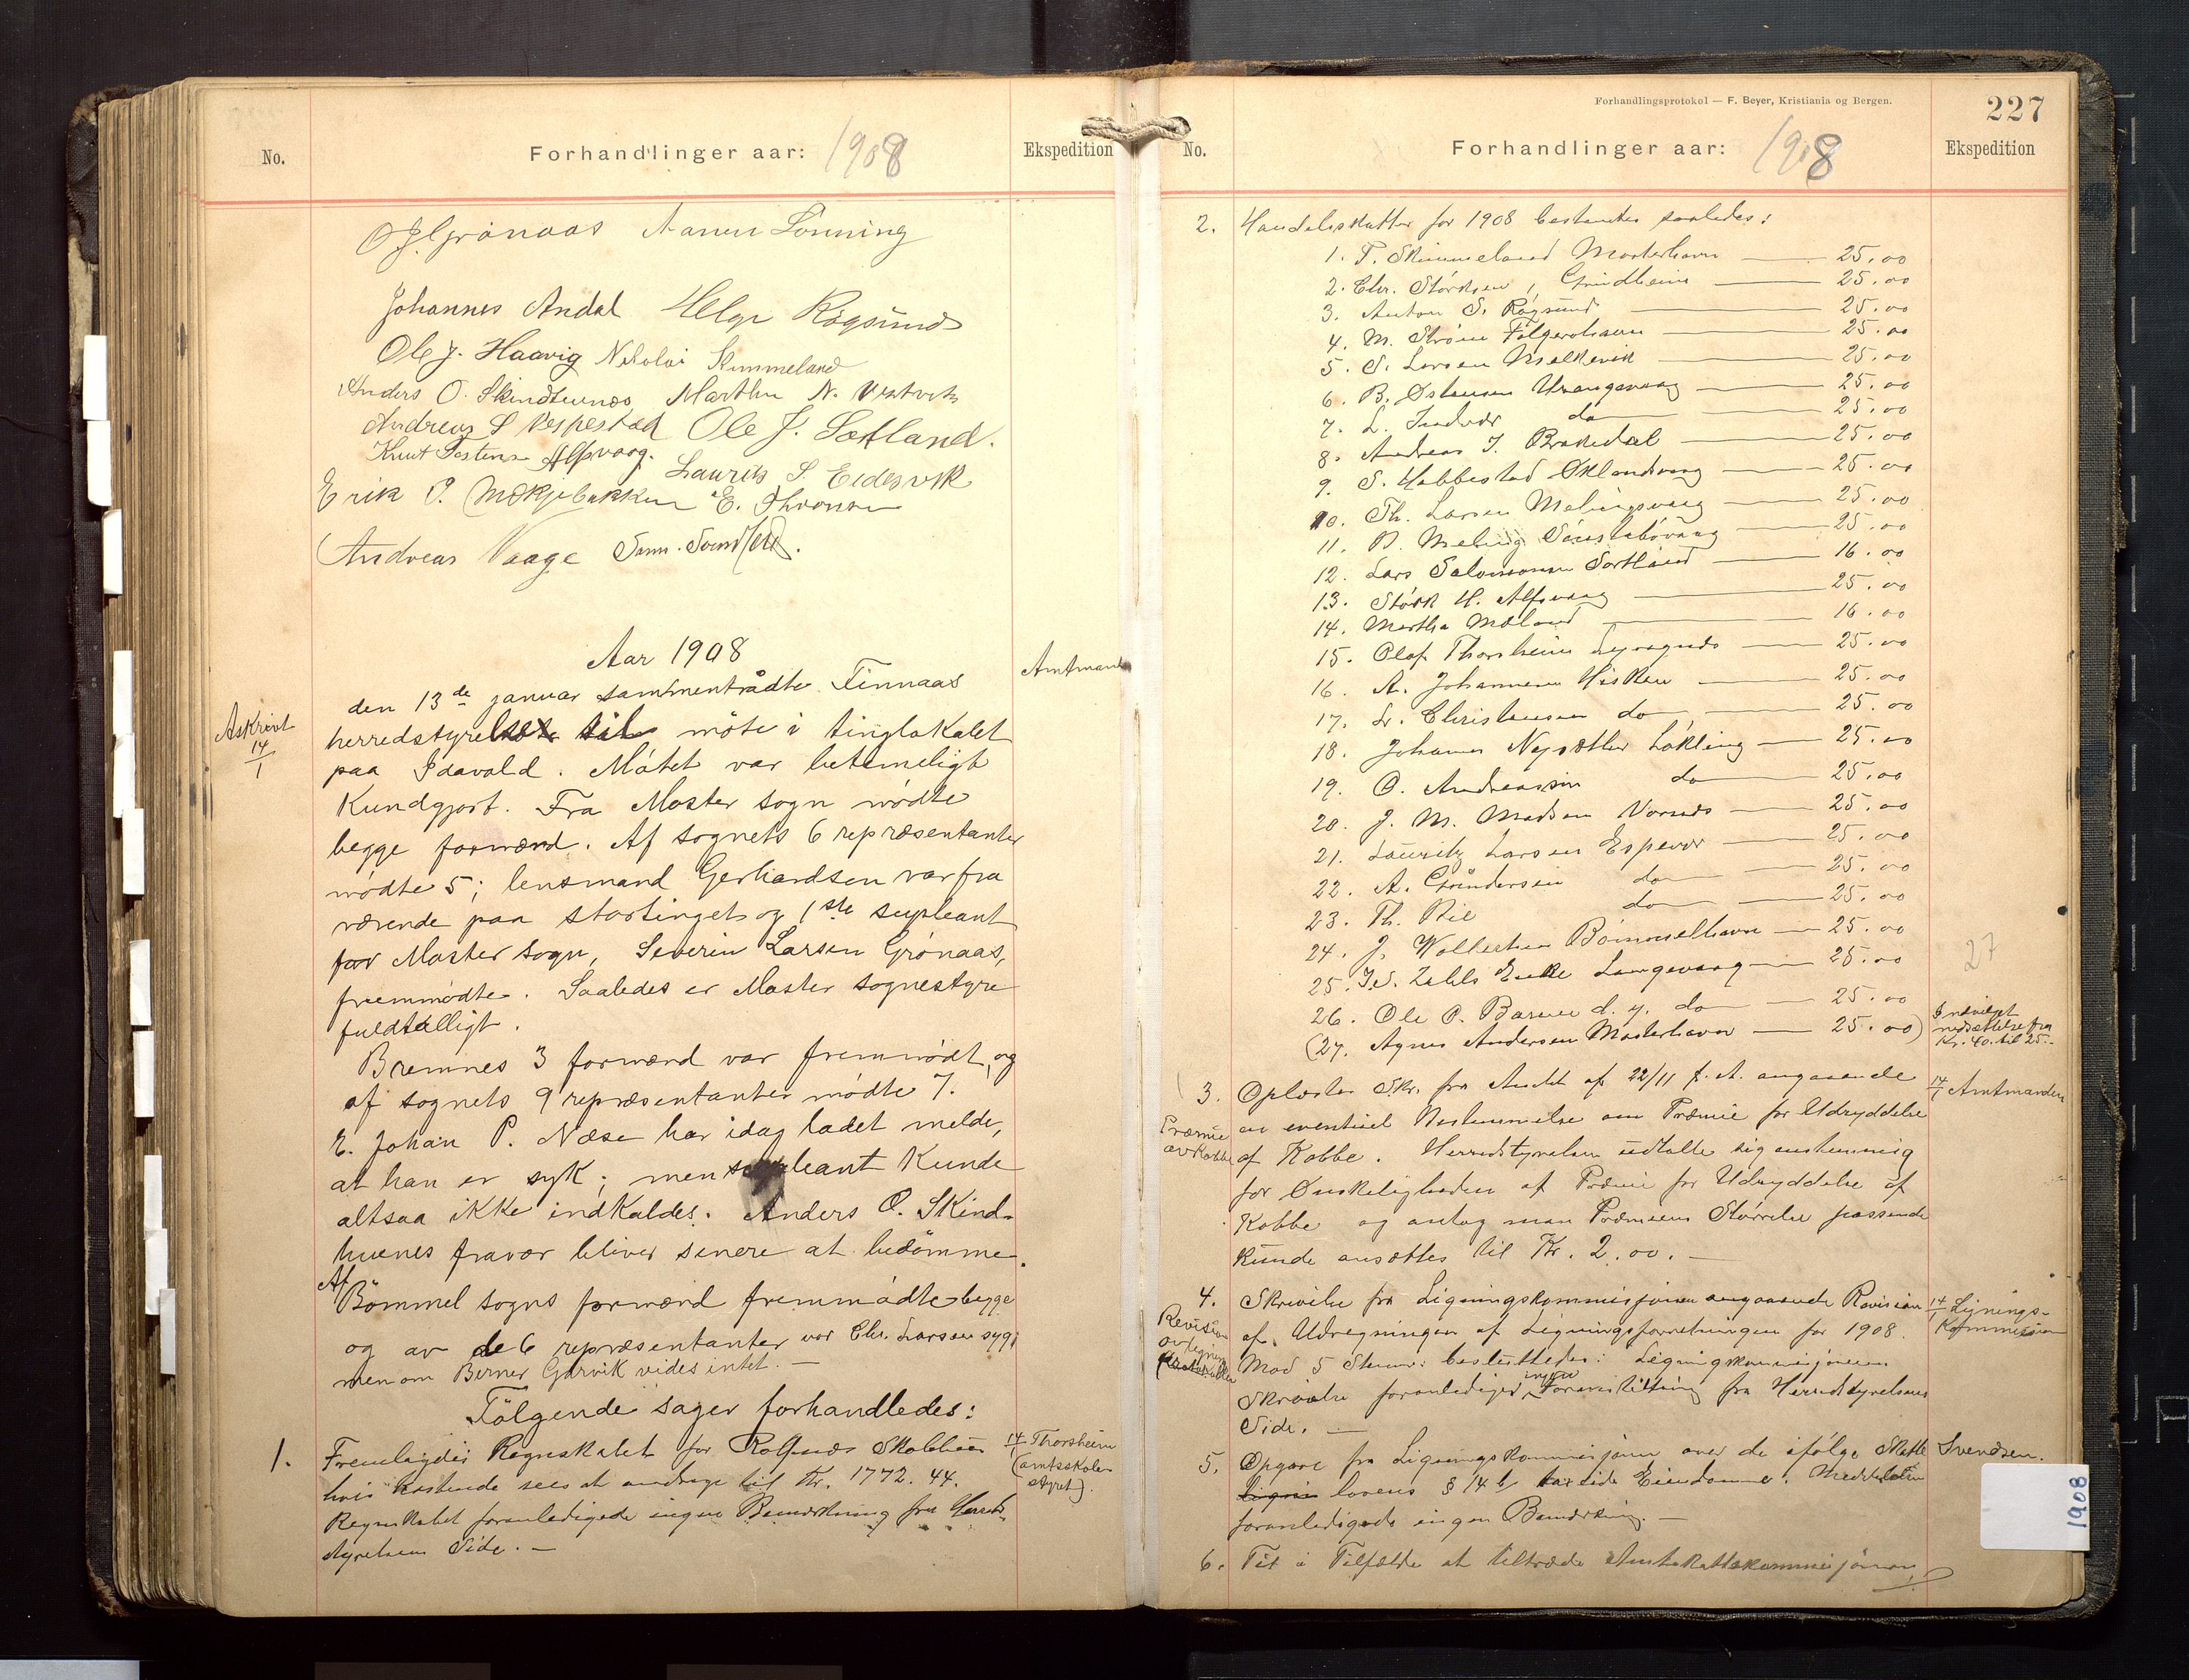 No.
Forhandlinger aar: 1908
Ekspedition
O J. Grönaas
Johannes Andal Helge Røgsund
Ole J. Haavig Nikolai Skimmeland
Anders O. Skindhuenæs Marthin N. Vestvik
Andreas S Vespestad Ole J. Sætland.
Knut Alfsvaag. Laurits S. Eidesvik
Erik P. Mækjebakken E. Thronsen
Andreas Vaage
Aar 1908
Amtmand
Askrivt
14
1
den 13de januar sammentrådte Finnaas
herredstyrelse til möte i tinglokalet
paa Idavold. Mötet var betimeligt
Kundgjort. Fra Moster sogn mödte
begge formænd. Af sognets 6 repræsentanter
mödte 5; lensmand Gerhardsen var fra
værende paa stortinget og 1ste supleant
for Moster sogn, Severin Larsen Grönaas,
fremmödte. Saaledes er Moster sognestyre
fuldtalligt.
Bremnes 3 formænd var fremmödt, og
af sognets 9 repræsentanter mödte 7.
E. Johan P. Næse har idag ladet melde,
at han er syk; men supleant Kunde
altsaa ikke indkaldes. Anders O. Skind-
huenes fravær bliver senere at bedömme.
Af
Bömmel sogns formænd fremmödte begge
og av de 6 repræsentanter var Chr. Larsen syg;
men om Berner Gárvik vides intet. —
Fölgende sager forhandledes:
1. Fremlagdes Regnskabet for Rolfsnæs Skolehus
hvis kostende sees at andrage til Kr. 1772.44.
Regnskabet foranledigede ingen Bemærkning fra Herreds-
styrelsens Side. —
14/1 Thorsheim
(amtsskole-
styret).
Forhandlingsprotokol — F. Beyer, Kristiania og Bergen.
227
No.
Forhandlinger aar: 1908
Ekspedition
2. Handelsskatten for 1908 bestemtes saaledes:
1. T. Skimmeland Mosterhavn — 25.00
2. Chr. Störksen, Grindheim — 25.00
3. Anton S. Røgsund — 25.00
4. M. Ström Fólgeróhavn — 25.00
5. S. Larsen Mælkevik — 25.00
6. B. Østensen Urangsvaag — 25.00
7. L. Indvær do — 25.00
8. Andreas J. Brakedal — 25.00
9. S. Habbestad Øklandsvaag — 25.00
10. Th. Larsen Melingsvaag — 25.00
11. B. Meling Sönstabövaag — 25.00
12. Lars Salomonsen Sortland — 16.00
13. Störk H. Alfsvaag — 25.00
14. Martha Mæland — 16.00
15. Olaf Thorsheim — 25.00
16. A. Johannesen Hisken — 25.00
17. Chr. Christensen do — 25.00
18. Johannes Nysæther Lökling — 25.00
19. O. Andreassen do — 25.00
20. J. M. Madsen Vornæs — 25.00
21. Lauritz Larsen Espevær — 25.00
22. A. Gundersen do — 25.00
23. Th. do — 25.00
24. J. Wallertsen Bömmelhavn — 25.00
25. Enke Langevaag — 25.00
26. Ole O. d. y. do — 25.00
(27. Agnes Andersen Mosterhavn — 25.00)
27
Indvilget
nedsættelse fra
Kr. 40. til 25.-
3. Oplæstes Skr. fra Amtet af 22/11 f. A. angaaende
en eventuel Bestemmelse om Præmie for Udryddelse
af Kobbe. Herredstyrelsen udtalte sig enstemmig
for Ønskeligheden af Præmie for Udryddelse af
Kobbe og antog man Præmiens Størrelse passende
kunde ansættes til Kr. 2.00. —
Præmie
av Kobbe
14/1 Amtmanden
4. Skrivelse fra Ligningskommisjonen angaaende Revision
af Udregningen af Ligningsforretningen for 1908.
Mod 5 Stemmer besluttedes: Ligningskommisjonens
Skrivelse foranlediger ingen Foranstaltning fra Herredstyrelsens
Side. —
Revision
av ligning
14/1 Lignings-
Kommission
5. Opgave fra Ligningskommisjonen over de ifølge Skatte
lovens § 14 b Eiendomme. Meddelelsen
foranledigede ingen Bemærkning. —
Svendsen.
6. Til i Tilfælde at tiltræde Amtsskattekommisjonen
1908